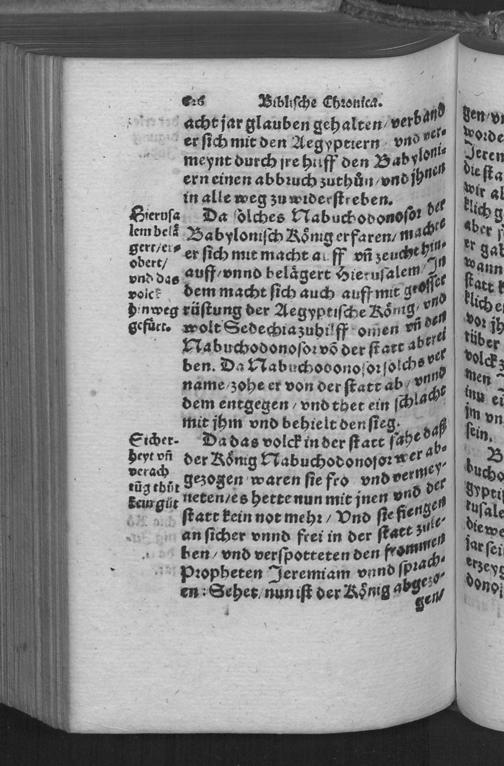 626 Biblische Chronica.
acht jar glauben gehalten/verband
er sich mit den Aegyptiern/vnd ver-
meynt durch jre hilff den Babyloni-
ern einen abbruch zuthůn/vnd jhnen
in alle weg zu widerstreben.
Hierusa
lem belå
gert/er-
obert/
vnd das
volck
hinweg
gefürt.
Da sölches Nabuchodonosor der
Babylonisch König erfaren/machte
er sich mit macht auff vñ zeucht hin-
auff/vnnd belägert Hierusalem/In
dem macht sich auch auff mit grosser
rüstung der Aegyptische König/vnd
wolt Sedechia zuhilff komen vñ den
Nabuchodonosor võ der statt abtrei
ben. Da Nabuchodonosor solchs ver
name/zohe er von der statt ab/vnnd
dem entgegen/vnd thet ein schlacht
mit jhm vnd behielt den sieg.
Sicher-
heyt vñ
verach
tũg thůt
kein gůt
Da das volck in der statt sahe daß
der König Nabuchodonosor wer ab-
gezogen waren sie fro vnd vermey-
neten/es hette nun mit jnen vnd der
statt kein not mehr/Vnd sie fiengen
an sicher vnnd frei in der statt zule-
ben/vnd verspotteten den frommen
Propheten Jeremiam vnnd sprach-
en: Sehet/nun ist der König abgezo-
gen/
gen/
worde
Jerem
die sta
wir al
klich g
aber
er gab
wann
statt
klich
vor jh
rüber
volck
men
jm vn
sein.
buch
gypti
rusale
die we
jar sei
erzeyg
donos